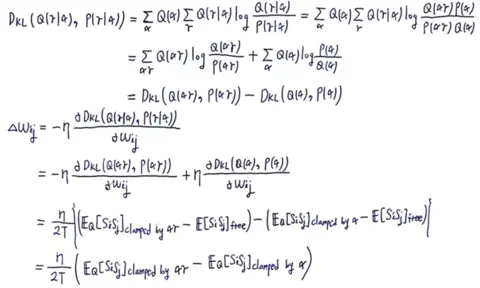 D_KL(Q(γ|α), P(γ|α)) = Σ_α Q(α) Σ_γ Q(γ|α) log Q(γ|α)/P(γ|α) = Σ_α Q(α) Σ_γ Q(γ|α) log Q(αγ)P(α)/P(αγ)Q(α)
= Σ_αγ Q(αγ) log Q(αγ)/P(αγ) + Σ_α Q(α) log P(α)/Q(α)
= D_KL(Q(αγ), P(αγ)) − D_KL(Q(α), P(α))
ΔWij = −η ∂D_KL(Q(γ|α), P(γ|α))/∂Wij
= −η ∂D_KL(Q(αγ), P(αγ))/∂Wij + η ∂D_KL(Q(α), P(α))/∂Wij
= η/2T {(E_Q[SiSj]clamped by αγ − E[SiSj]free) − (E_Q[SiSj]clamped by α − E[SiSj]free)}
= η/2T (E_Q[SiSj]clamped by αγ − E_Q[SiSj]clamped by α)